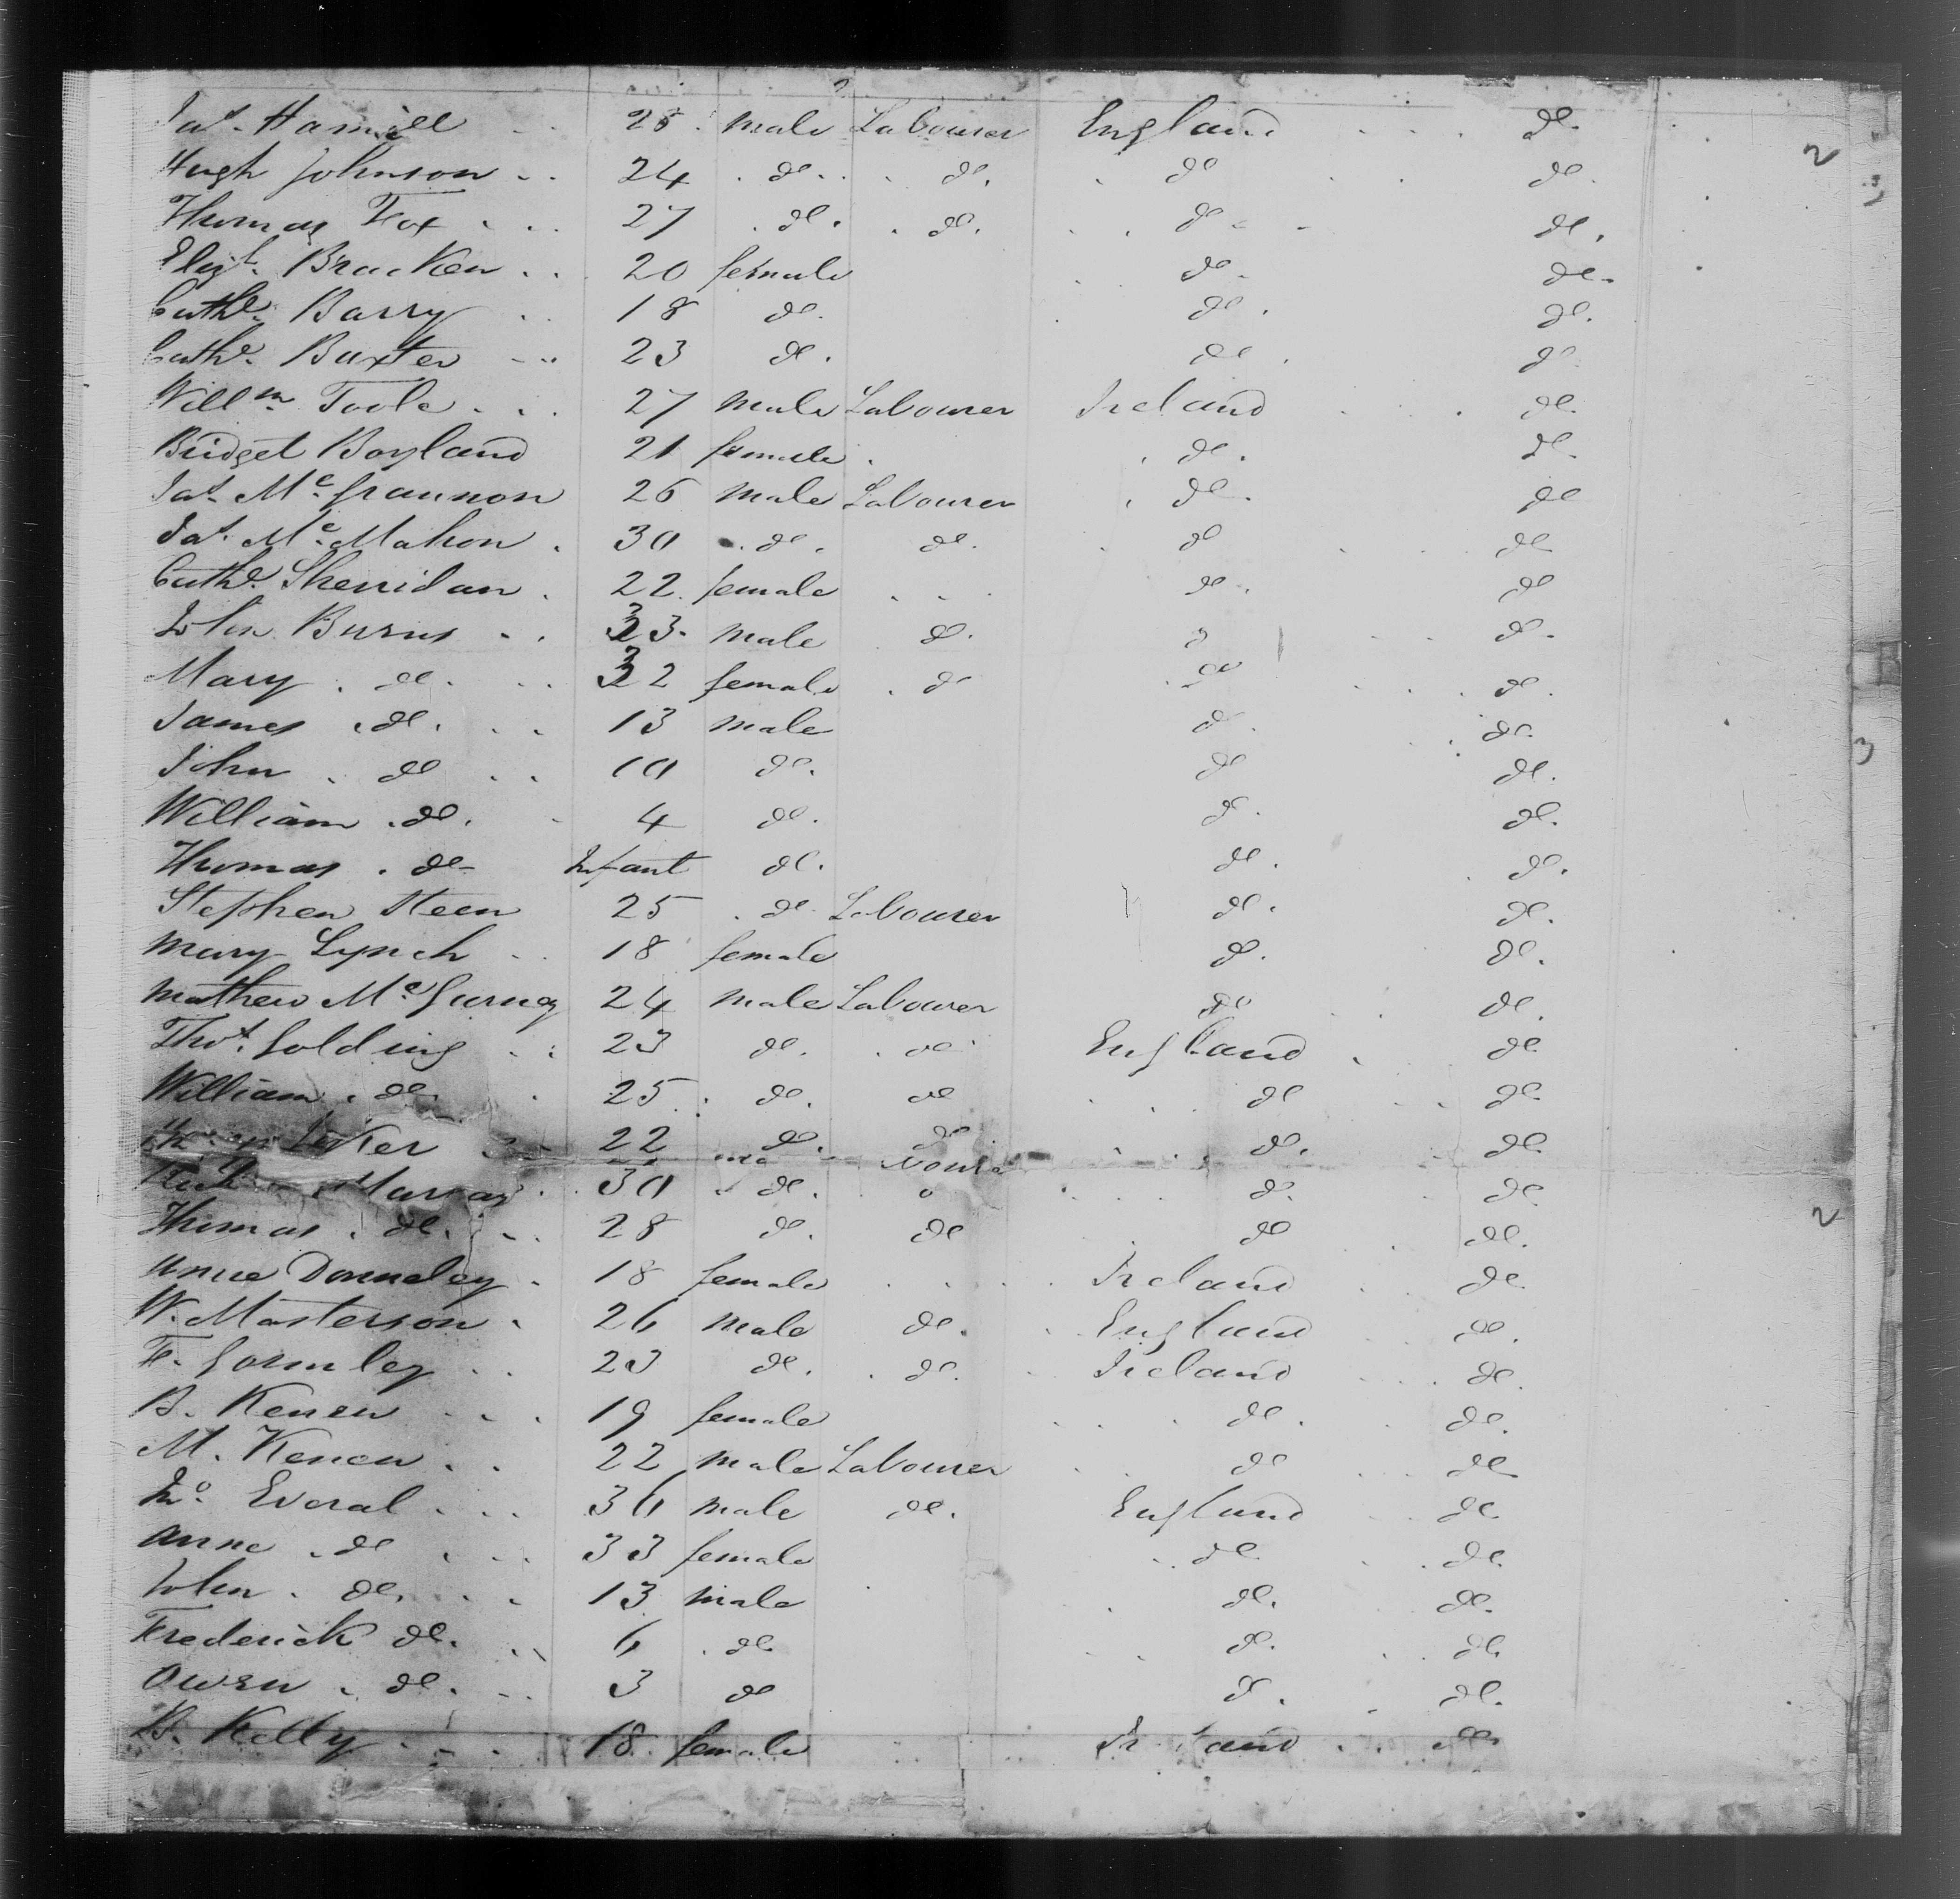 Jas. Hamill 28 male Labourer England do.
Hugh Johnson 24 do. do. do do.
Thomas Fox 27 do. do. do do.
Elizth. Bracken 20 female do. do.
Cathe. Barry 18 do. do. do.
Cathe. Baxter 23 do. do. do
Willm. Toole 27 male Labourer Ireland do.
Bridget Boyland 21 female do. do.
Jas. Mc. Grannon 26 male Labourer do. do
Jas. Mc. Mahon 30 do. do. do do
Cathe. Sherridan 22 female do. do
John Burns 33 male do. do.
Mary do. 32 female do do do.
James do. 13 male do. do.
John do 10 do. do do.
William do. 4 do. do. do.
Thomas do Infant do. do. do.
Stephen Steen 25 do Labourer do. do.
Mary Lynch 18 female do. do.
Mathew Mc. Gurney 24 male Labourer do do.
Thos. Golding 23 do. do England do
William do. 25 do. do do do.
22 do. do do. do.
Murray 30 do. do. do
Thomas do. 28 do. do do do.
Anne Donneley 18 female Ireland do.
W. Masterson 26 male do. England do.
F. Gormley 23 do. do. Ireland do.
B. Kenen 19 female do. do.
M. Kenen 22 male Labourer do do
Jno. Everal 36 male do. England do.
Anne do 33 female do. do.
John do. 13 male do. do.
Frederick do. 6 do. do. do.
Owen do. 3 do do. do.
Kelly 18 female Ireland do.
2
3
2